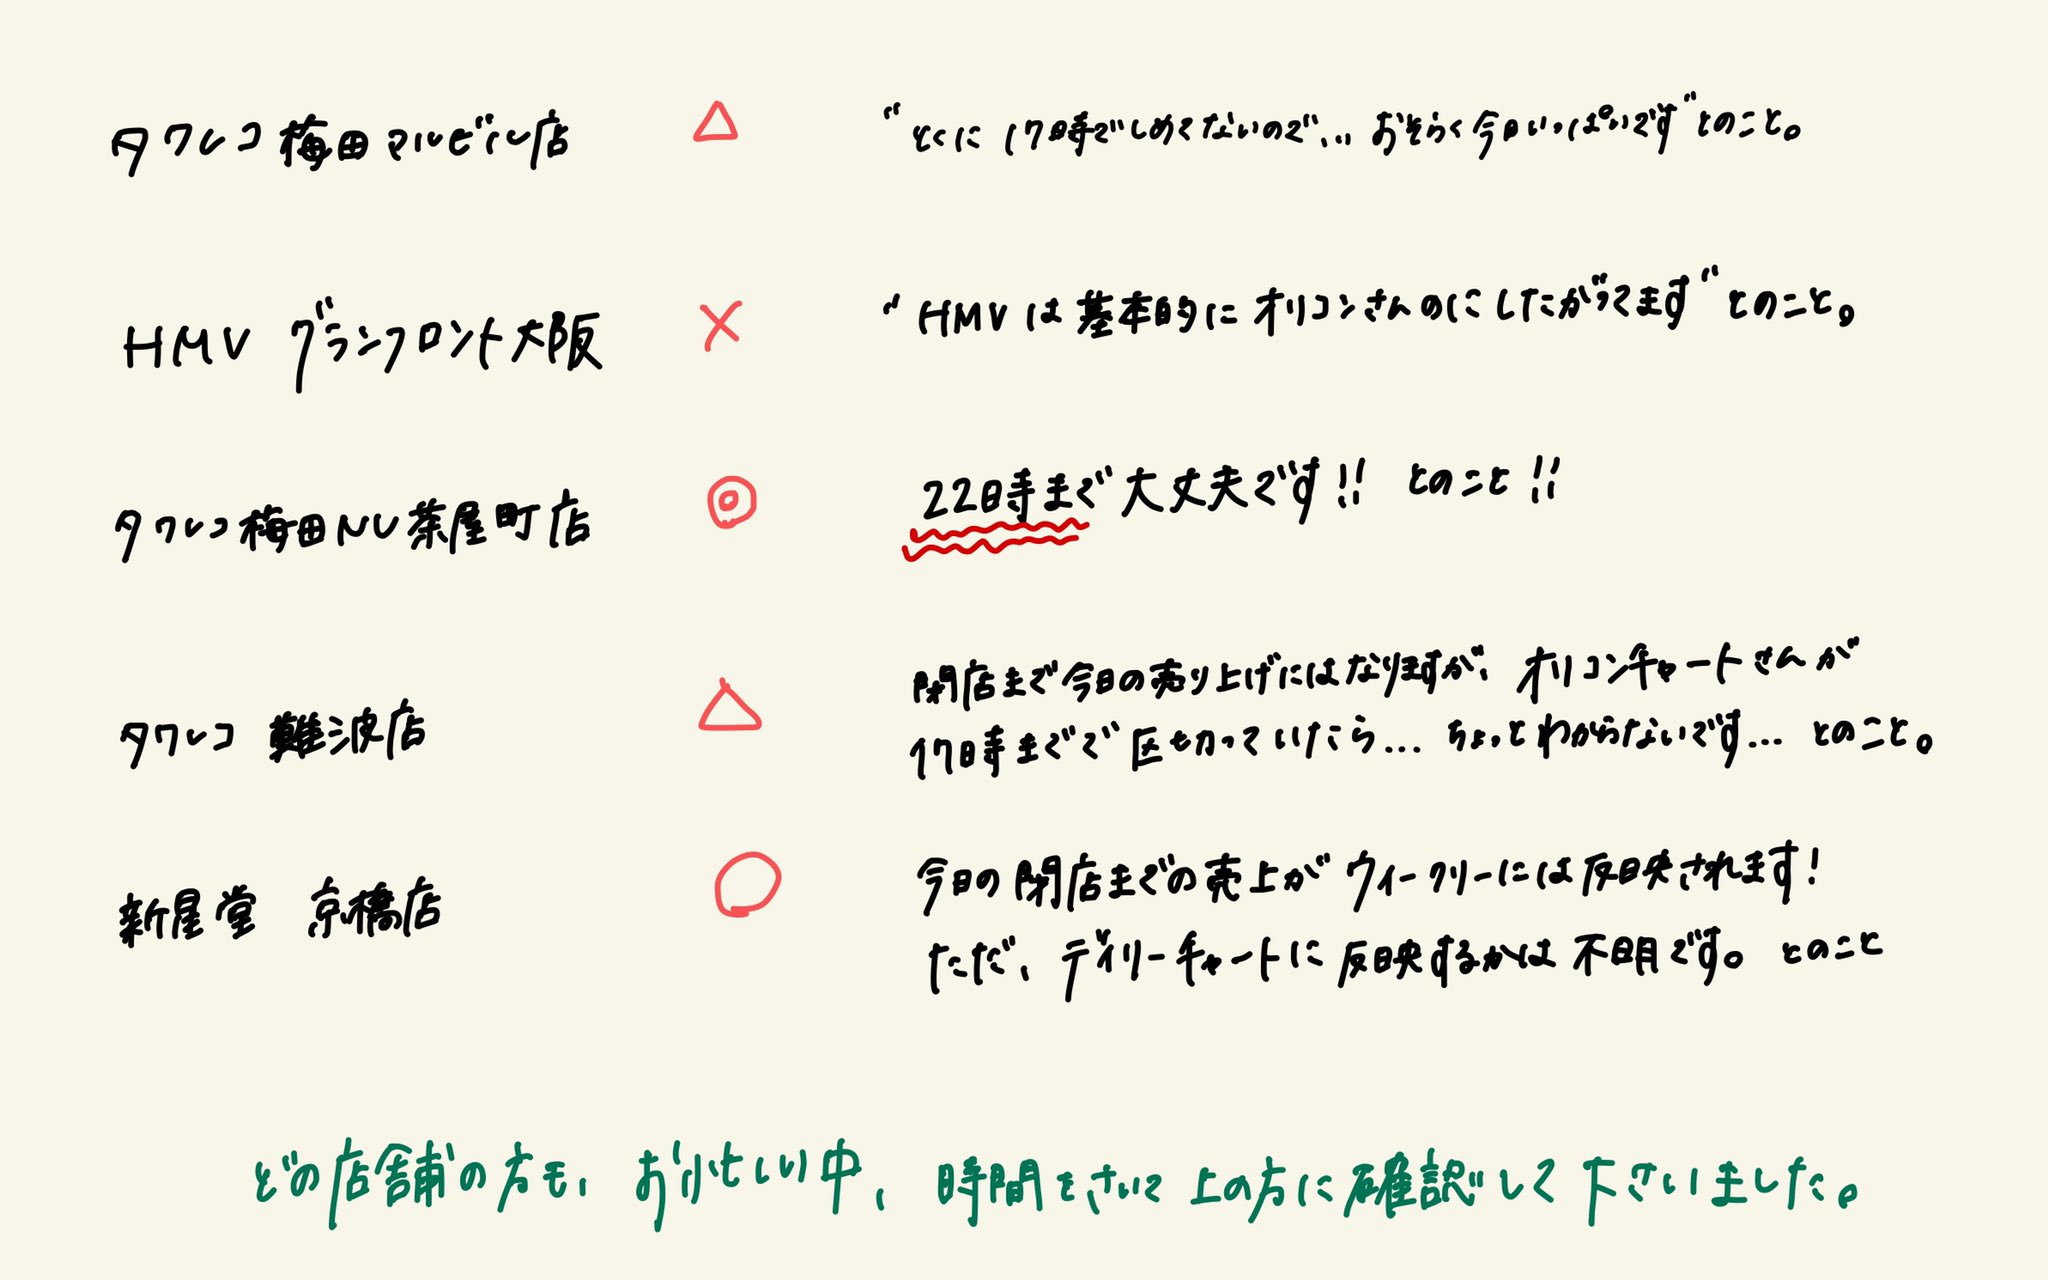 タワレコ 梅田 マルビル店 △ "とくに 17時でしめてないので、… おそらく今日いっぱいです" とのこと。
HMV グランフロント大阪 × "HMV は 基本的に オリコンさんのにしたがってます" とのこと。
タワレコ 梅田NU茶屋町店 ◎ 22時まで 大丈夫です!! とのこと!!
タワレコ 難波店 △ 閉店まで今日の売り上げにはなりますが、オリコンチャートさんが
17時までで 区切っていたら… ちょっとわからないです… とのこと。
新星堂 京橋店 ○ 今日の閉店までの売上が ウィークリーには反映されます!
ただ、デイリーチャートに反映するかは 不明です。とのこと
どの店舗の方も、お忙しい中、時間をさいて 上の方に確認して下さいました。